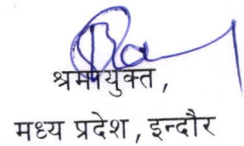 श्रमायुक्त,
मध्य प्रदेश, इन्दौर